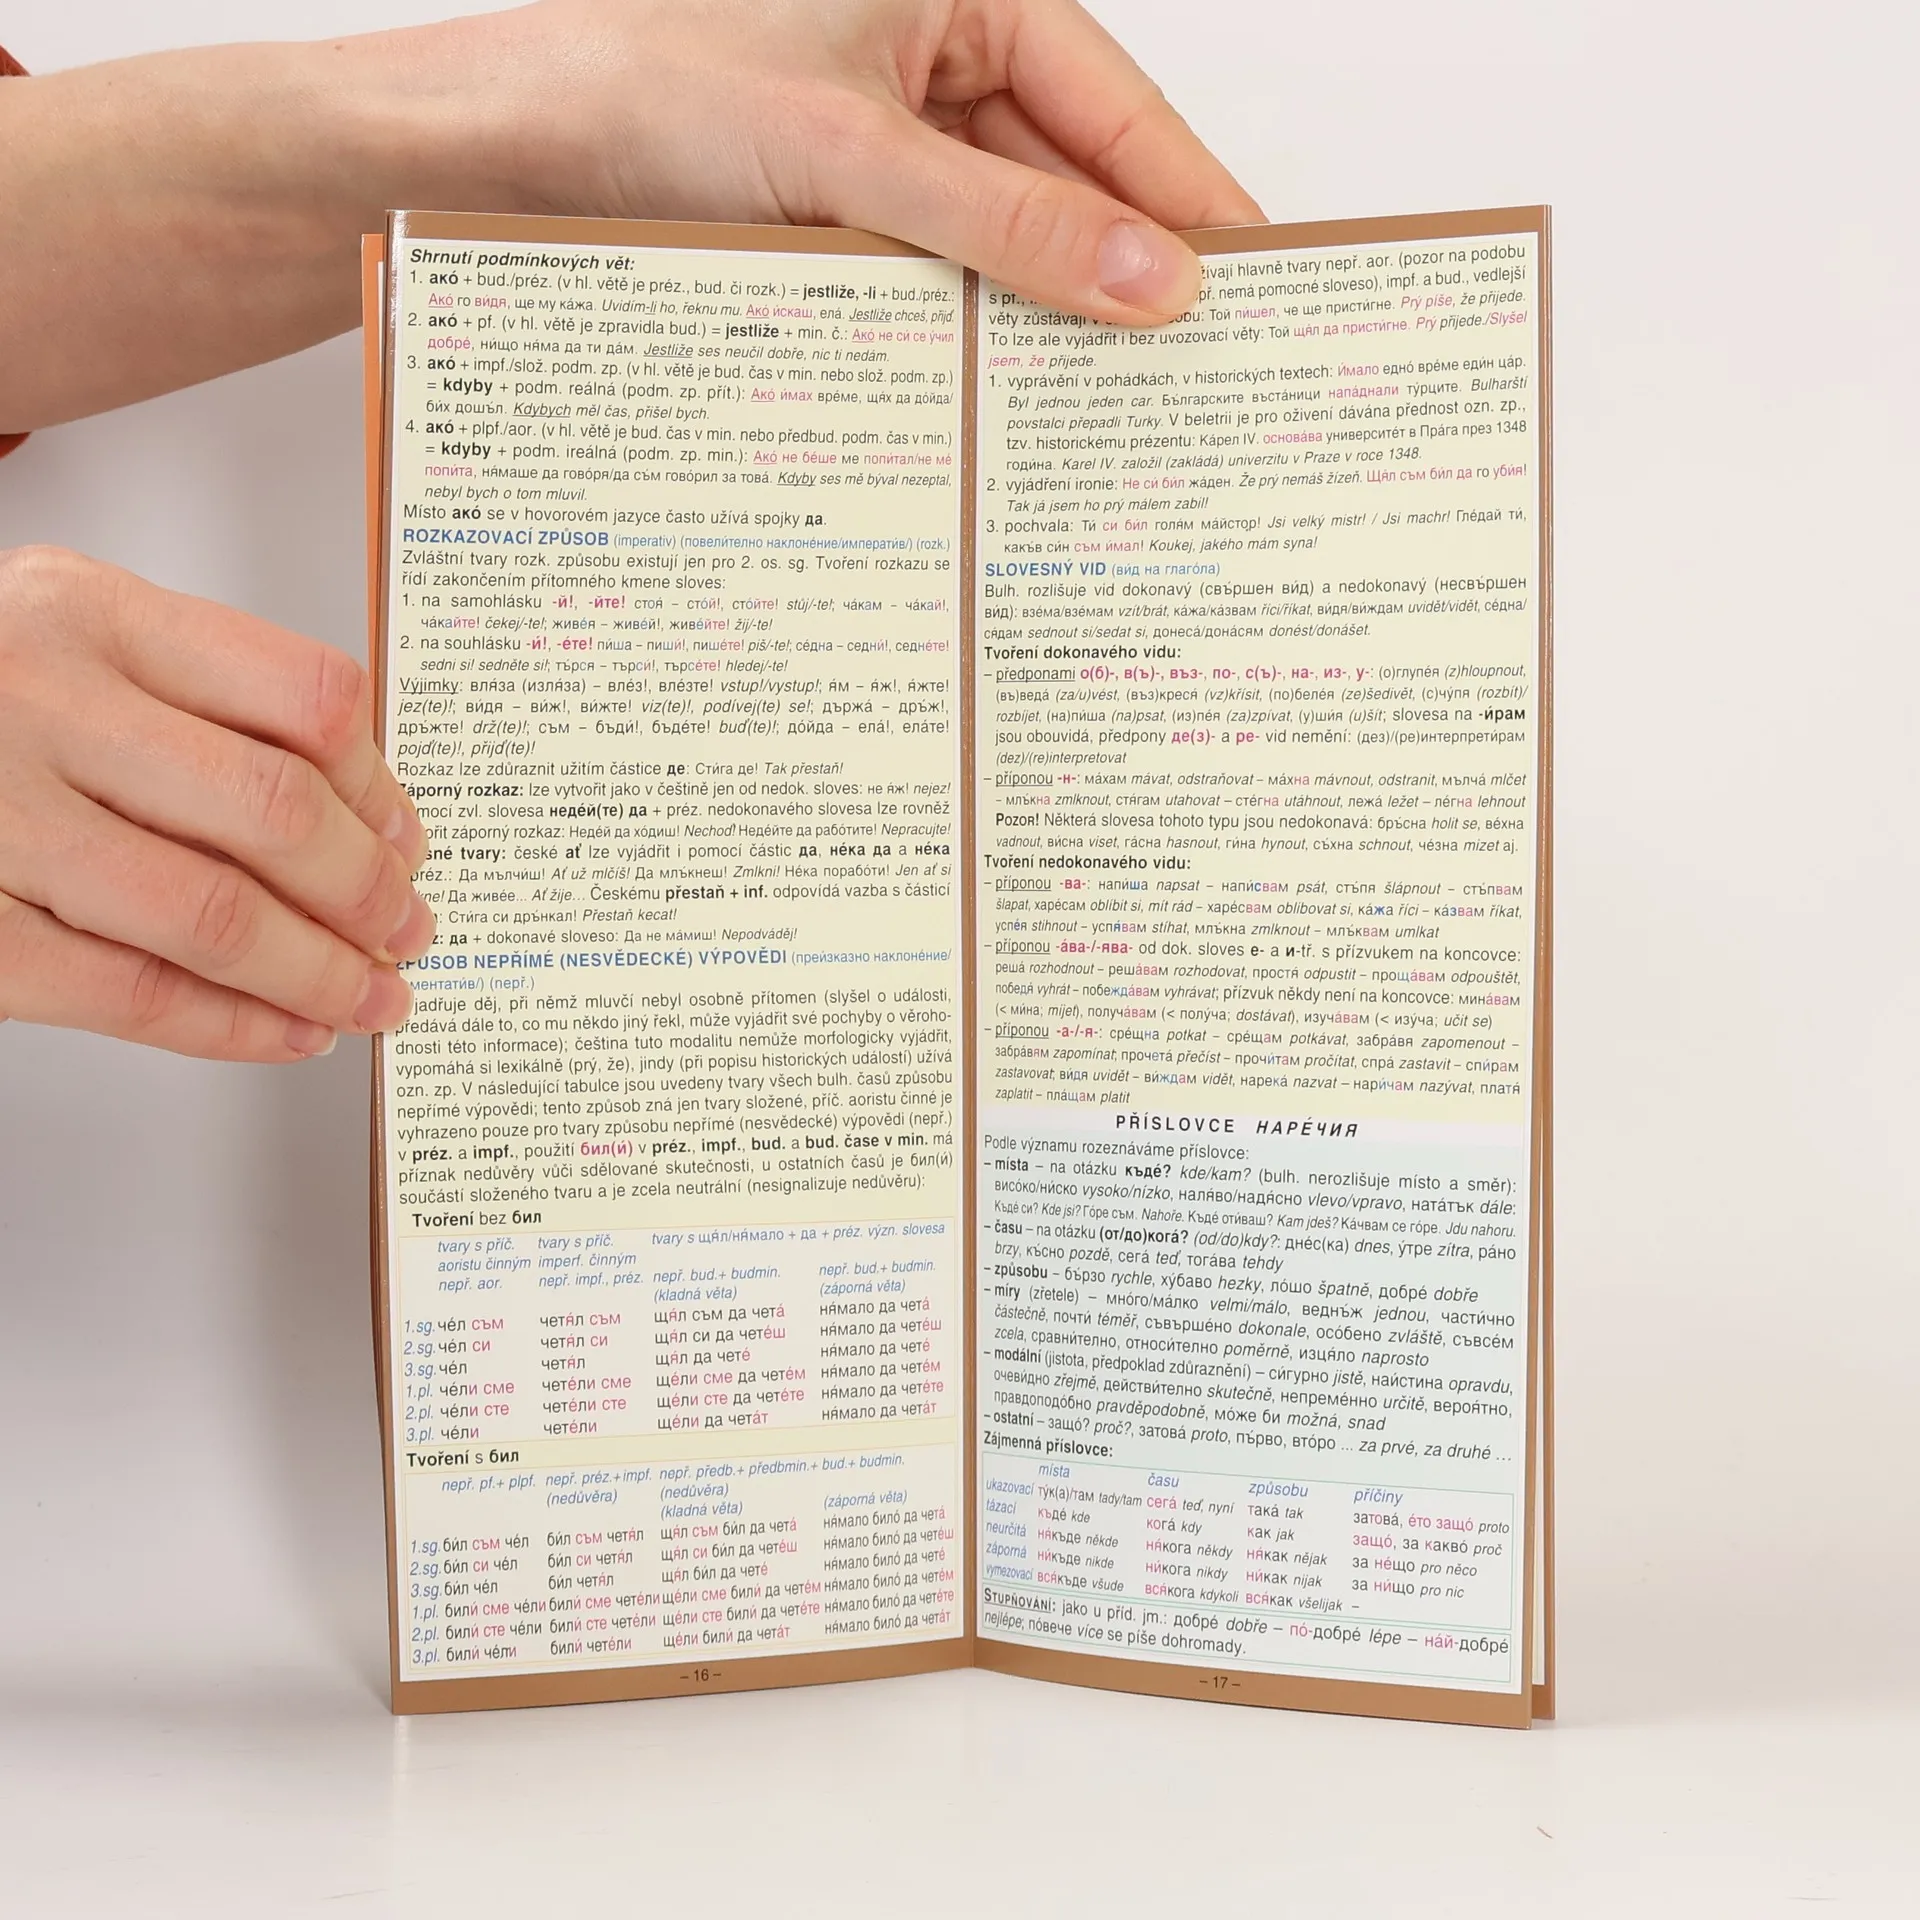 Shrnutí podmínkových vět:
1. акó + bud./préz. (v hl. větě je préz., bud. či rozk.) = jestliže, -li + bud./préz.:
Акó го вѝдя, ще му кáжа. Uvidím-li ho, řeknu mu. Акó ѝскаш, елá. Jestliže chceš, přijď.
2. акó + pf. (v hl. větě je zpravidla bud.) = jestliže + min. č.: Акó не сѝ се ýчил
добрé, нѝщо няма да ти дáм. Jestliže ses neučil dobře, nic ti nedám.
3. акó + impf./slož. podm. zp. (v hl. větě je bud. čas v min. nebo slož. podm. zp.)
= kdyby + podm. reálná (podm. zp. přít.): Акó ѝмах врéме, щях да дóйда/
бѝх дошъл. Kdybych měl čas, přišel bych.
4. акó + plpf./aor. (v hl. větě je bud. čas v min. nebo předbud. podm. čas v min.)
= kdyby + podm. ireálná (podm. zp. min.): Акó не бéше ме попѝтал/не мé
попѝта, нямаше да говóря/да съм говóрил за товá. Kdyby ses mě býval nezeptal,
nebyl bych o tom mluvil.
Místo акó se v hovorovém jazyce často užívá spojky да.
ROZKAZOVACÍ ZPŮSOB (imperativ) (повелѝтелно наклонéние/императѝв/) (rozk.)
Zvláštní tvary rozk. způsobu existují jen pro 2. os. sg. Tvoření rozkazu se
řídí zakončením přítomného kmene sloves:
1. na samohlásku -й!, -йте! стоя́ – стóй!, стóйте! stůj/-te!; чáкам – чáкай!,
чáкайте! čekej/-te!; живéя – живéй!, живéйте! žij/-te!
2. na souhlásku -ѝ!, -éте! пѝша – пишѝ!, пишéте! piš/-te!; сéдна – седнѝ!, седнéте!
sedni si! sedněte si!; тъ́рся – търсѝ!, търсéте! hledej/-te!
Výjimky: вля́за (изля́за) – влéз!, влéзте! vstup!/vystup!; я́м – я́ж!, я́жте!
jez(te)!; вѝдя – вѝж!, вѝжте! viz(te)!, podívej(te) se!; държá – дръ́ж!,
дръ́жте! drž(te)!; съм – бъдѝ!, бъдéте! buď(te)!; дóйда – елá!, елáте!
pojď(te)!, přijď(te)!
Rozkaz lze zdůraznit užitím částice де: Стѝга де! Tak přestaň!
Záporný rozkaz: lze vytvořit jako v češtině jen od nedok. sloves: не я́ж! nejez!
mocí zvl. slovesa недéй(те) да + préz. nedokonavého slovesa lze rovněž
ořit záporný rozkaz: Недéй да хóдиш! Nechoď! Недéйте да рабóтите! Nepracujte!
sné tvary: české ať lze vyjádřit i pomocí částic да, нéка да a нéка
préz.: Да мълчѝш! Ať už mlčíš! Да млъ́кнеш! Zmlkni! Нéка порабóти! Jen ať si
kne! Да живéе... Ať žije... Českému přestaň + inf. odpovídá vazba s částicí
: Стѝга си дръ́нкал! Přestaň kecat!
z: да + dokonavé sloveso: Да не мáмиш! Nepodváděj!
ZPŮSOB NEPŘÍMÉ (NESVĚDECKÉ) VÝPOVĚDI (преѝзказно наклонéние/
ментатѝв/) (nepř.)
jadřuje děj, při němž mluvčí nebyl osobně přítomen (slyšel o události,
předává dále to, co mu někdo jiný řekl, může vyjádřit své pochyby o věroho-
dnosti této informace); čeština tuto modalitu nemůže morfologicky vyjádřit,
vypomáhá si lexikálně (prý, že), jindy (při popisu historických událostí) užívá
ozn. zp. V následující tabulce jsou uvedeny tvary všech bulh. časů způsobu
nepřímé výpovědi; tento způsob zná jen tvary složené, příč. aoristu činné je
vyhrazeno pouze pro tvary způsobu nepřímé (nesvědecké) výpovědi (nepř.)
v préz. a impf., použití бил(ѝ) v préz., impf., bud. a bud. čase v min. má
příznak nedůvěry vůči sdělované skutečnosti, u ostatních časů je бил(ѝ)
součástí složeného tvaru a je zcela neutrální (nesignalizuje nedůvěru):
Tvoření bez бил
tvary s příč. tvary s příč. tvary s щя́л/ня́мало + да + préz. význ. slovesa
aoristu činným imperf. činným
nepř. aor. nepř. impf., préz. nepř. bud.+ budmin. nepř. bud.+ budmin.
(kladná věta) (záporná věta)
1.sg. чéл съм четя́л съм щя́л съм да четá ня́мало да четá
2.sg. чéл си четя́л си щя́л си да четéш ня́мало да четéш
3.sg. чéл четя́л щя́л да четé ня́мало да четé
1.pl. чéли сме четéли сме щéли сме да четéм ня́мало да четéм
2.pl. чéли сте четéли сте щéли сте да четéте ня́мало да четéте
3.pl. чéли четéли щéли да четáт ня́мало да четáт
Tvoření s бил
nepř. pf.+ plpf. nepř. préz.+impf. nepř. předb.+ předbmin.+ bud.+ budmin.
(nedůvěra) (nedůvěra)
(kladná věta) (záporná věta)
1.sg. бѝл съм чéл бѝл съм четя́л щя́л съм бѝл да четá ня́мало билó да четá
2.sg. бѝл си чéл бѝл си четя́л щя́л си бѝл да четéш ня́мало билó да четéш
3.sg. бѝл чéл бѝл четя́л щя́л бѝл да четé ня́мало билó да четé
1.pl. билѝ сме чéли билѝ сме четéли щéли сме билѝ да четéм ня́мало билó да четéм
2.pl. билѝ сте чéли билѝ сте четéли щéли сте билѝ да четéте ня́мало билó да четéте
3.pl. билѝ чéли билѝ четéли щéли билѝ да четáт ня́мало билó да четáт
– 16 –
žívají hlavně tvary nepř. aor. (pozor na podobu
s pf., př. nemá pomocné sloveso), impf. a bud., vedlejší
věty zůstávají v obu: Той пѝшел, че ще пристѝгне. Prý píše, že přijede.
To lze ale vyjádřit i bez uvozovací věty: Той щя́л да пристѝгне. Prý přijede./Slyšel
jsem, že přijede.
1. vyprávění v pohádkách, v historických textech: Ѝмало еднó врéме едѝн цáр.
Byl jednou jeden car. Бъ́лгарските въстáници нападнали тýрците. Bulharští
povstalci přepadli Turky. V beletrii je pro oživení dávána přednost ozn. zp.,
tzv. historickému prézentu: Кáрел IV. основáва университéт в Прáга през 1348
годѝна. Karel IV. založil (zakládá) univerzitu v Praze v roce 1348.
2. vyjádření ironie: Не сѝ бѝл жáден. Že prý nemáš žízeň. Щя́л съм бѝл да го убѝя!
Tak já jsem ho prý málem zabil!
3. pochvala: Тѝ си бѝл голя́м мáйстор! Jsi velký mistr! / Jsi machr! Глéдай тѝ,
какъ́в сѝн съм ѝмал! Koukej, jakého mám syna!
SLOVESNÝ VID (вѝд на глагóла)
Bulh. rozlišuje vid dokonavý (свъ́ршен вѝд) a nedokonavý (несвъ́ршен
вѝд): взéма/взéмам vzít/brát, кáжа/кáзвам říci/říkat, вѝдя/вѝждам uvidět/vidět, сéдна/
ся́дам sednout si/sedat si, донесá/донáсям donést/donášet.
Tvoření dokonavého vidu:
– předponami о(б)-, в(ъ)-, въз-, по-, с(ъ)-, на-, из-, у-: (о)глупéя (z)hloupnout,
(въ)ведá (za/u)vést, (въз)кресѝ (vz)křísit, (по)белéя (ze)šedivět, (с)чýпя (rozbít)/
rozbíjet, (на)пѝша (na)psat, (из)пéя (za)zpívat, (у)шѝя (u)šít; slovesa na -ѝрам
jsou obouvidá, předpony де(з)- a ре- vid nemění: (дез)/(ре)интерпретѝрам
(dez)/(re)interpretovat
– příponou -н-: мáхам mávat, odstraňovat – мáхна mávnout, odstranit, мълчá mlčet
– млъ́кна zmlknout, стя́гам utahovat – стéгна utáhnout, лежá ležet – лéгна lehnout
Pozor! Některá slovesa tohoto typu jsou nedokonavá: бръ́сна holit se, вéхна
vadnout, вѝсна viset, гáсна hasnout, гѝна hynout, съ́хна schnout, чéзна mizet aj.
Tvoření nedokonavého vidu:
– příponou -ва-: напѝша napsat – напѝсвам psát, стъ́пя šlápnout – стъ́пвам
šlapat, харéсам oblíbit si, mít rád – харéсвам oblibovat si, кáжа říci – кáзвам říkat,
успéя stihnout – успя́вам stíhat, млъ́кна zmlknout – млъ́квам umlkat
– příponou -áва-/-я́ва- od dok. sloves е- a и-tř. s přízvukem na koncovce:
решá rozhodnout – решáвам rozhodovat, простя́ odpustit – прощáвам odpouštět,
победя́ vyhrát – побеждáвам vyhrávat; přízvuk někdy není na koncovce: минáвам
(< мѝна; míjet), получáвам (< полýча; dostávat), изучáвам (< изýча; učit se)
– příponou -а-/-я-: срéщна potkat – срéщам potkávat, забрáвя zapomenout –
забрáвям zapomínat; прочетá přečíst – прочѝтам pročítat, спрá zastavit – спѝрам
zastavovat; вѝдя uvidět – вѝждам vidět, нарекá nazvat – нарѝчам nazývat, платя́
zaplatit – плáщам platit
PŘÍSLOVCE НАРÉЧИЯ
Podle významu rozeznáváme příslovce:
– místa – na otázku къдé? kde/kam? (bulh. nerozlišuje místo a směr):
висóко/нѝско vysoko/nízko, наля́во/надя́сно vlevo/vpravo, натáтък dále:
Къдé си? Kde jsi? Гóре съм. Nahoře. Къдé отѝваш? Kam jdeš? Кáчвам се гóре. Jdu nahoru.
– času – na otázku (от/до)когá? (od/do)kdy?: днéс(ка) dnes, ýтре zítra, рáно
brzy, къ́сно pozdě, сегá teď, тогáва tehdy
– způsobu – бъ́рзо rychle, хýбаво hezky, лóшо špatně, добрé dobře
– míry (zřetele) – мнóго/мáлко velmi/málo, веднъ́ж jednou, частѝчно
částečně, почтѝ téměř, съвършéно dokonale, осóбено zvláště, съвсéм
zcela, сравнѝтелно, относѝтелно poměrně, изця́ло naprosto
– modální (jistota, předpoklad zdůraznění) – сѝгурно jistě, наѝстина opravdu,
очевѝдно zřejmě, действѝтелно skutečně, непремéнно určitě, вероя́тно,
правдоподóбно pravděpodobně, мóже би možná, snad
– ostatní – защó? proč?, затовá proto, пъ́рво, втóро ... za prvé, za druhé ...
Zájmenná příslovce:
místa času způsobu příčiny
ukazovací тýк(а)/там tady/tam сегá teď, nyní такá tak затовá, éто защó proto
tázací къдé kde когá kdy как jak защó, за каквó proč
neurčitá ня́къде někde ня́кога někdy ня́как nějak за нéщо pro něco
záporná нѝкъде nikde нѝкога nikdy нѝкак nijak за нѝщо pro nic
vymezovací вся́къде všude вся́кога kdykoli вся́как všelijak –
Stupňování: jako u příd. jm.: добрé dobře – пó-добрé lépe – нáй-добрé
nejlépe; пóвече více se píše dohromady.
– 17 –